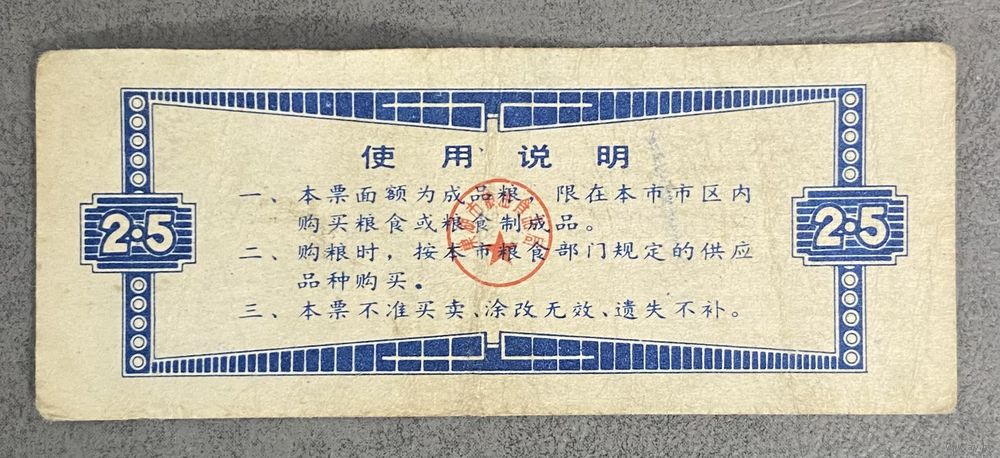 使用说明
2·5
2·5
一、本票面额为成品粮，限在本市市区内
购买粮食或粮食制成品。
二、购粮时，按本市粮食部门规定的供应
品种购买。
三、本票不准买卖、涂改无效、遗失不补。